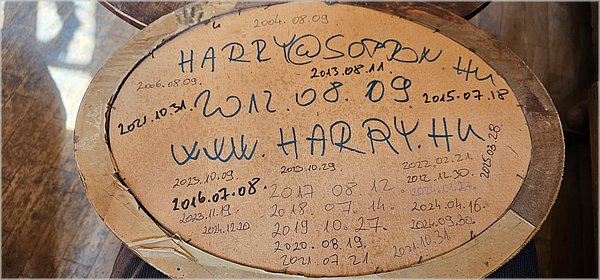 2004.08.09
HARRY@SOPRON.HU
2006.08.09. 2013.08.11.
2021.10.31. 2012.08.09 2015.07.18
WWW.HARRY.HU
2025.03.28.
2023.10.09. 2010.10.29. 2022.02.21.
2016.07.08. 2017 08 12. 2012.12.30.
2023.11.19 2018.07.14. 2024.04.16.
2024.12.20 2019 10.27. 2024.09.30.
2020.08.19. 2021.10.31.
2021.07.21